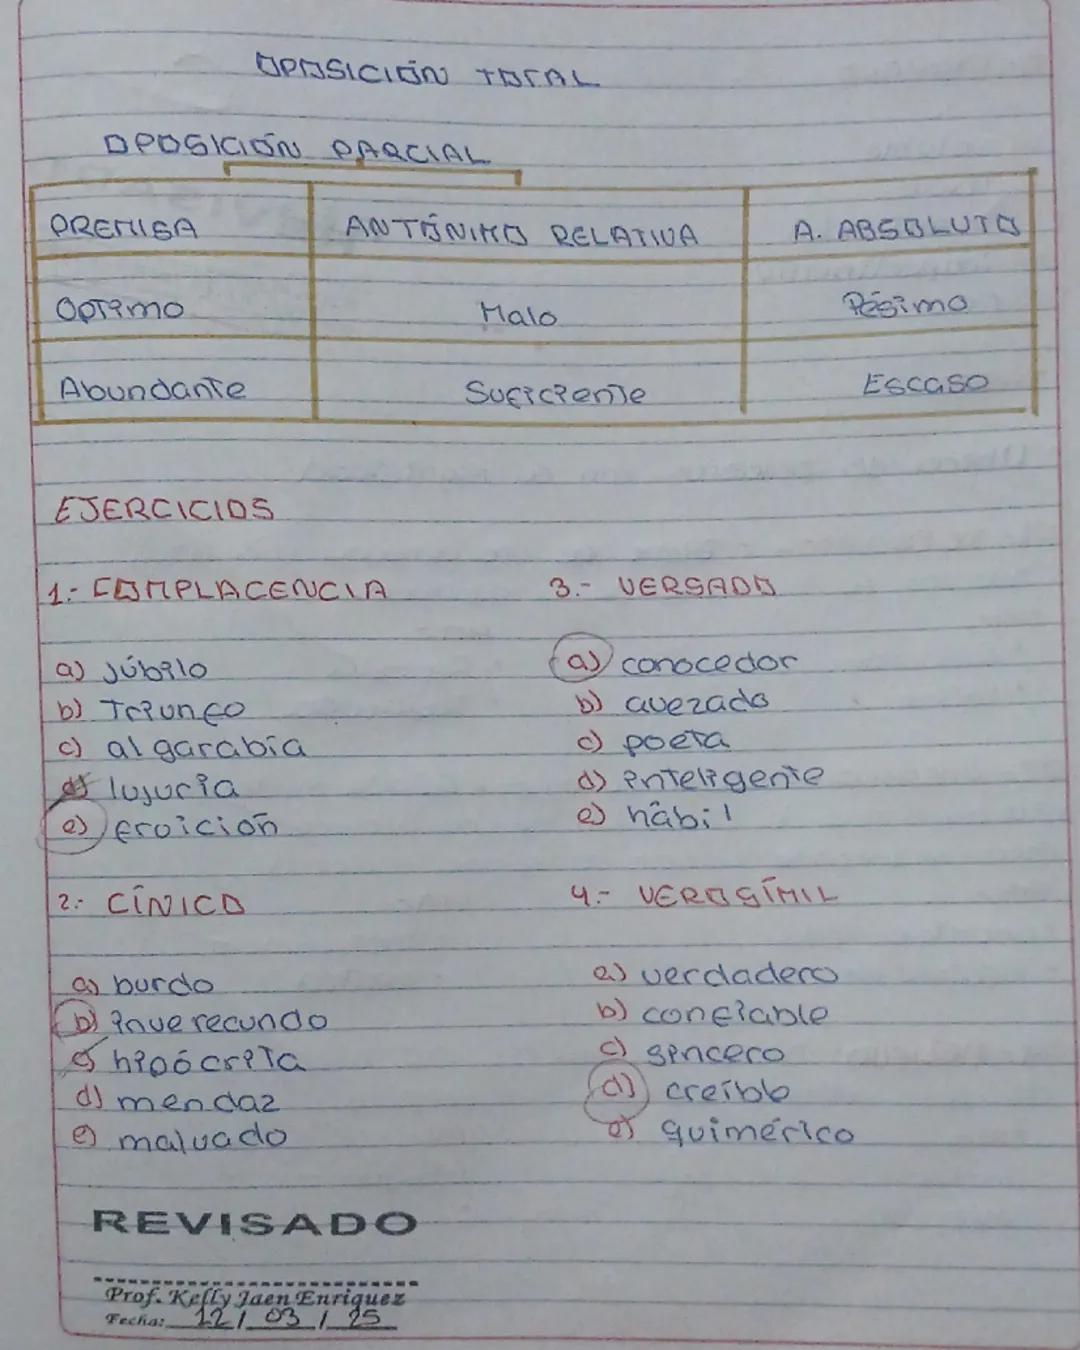 OPOSICIÓN TOTAL
OPOSICIÓN PARCIAL
PREMISA ANTÓNIMO RELATIVA A. ABSOLUTO
Optimo Malo Pésimo
Abundante Suficiente Escaso
EJERCICIOS
1.- COMPLACENCIA
a) Júbilo
b) Triunfo
c) algarabía
d) lujuria
e) fruición
2.- CÍNICO
a) burdo
b) inverecundo
c) hipócrita
d) mendaz
e) malvado
3.- VERSADO
a) conocedor
b) avezado
c) poeta
d) inteligente
e) hábil
4.- VEROSÍMIL
a) verdadero
b) confiable
c) sincero
d) creíble
e) quimérico
REVISADO
Prof. Kelly Jaen Enriquez
Fecha: 12 / 03 / 25